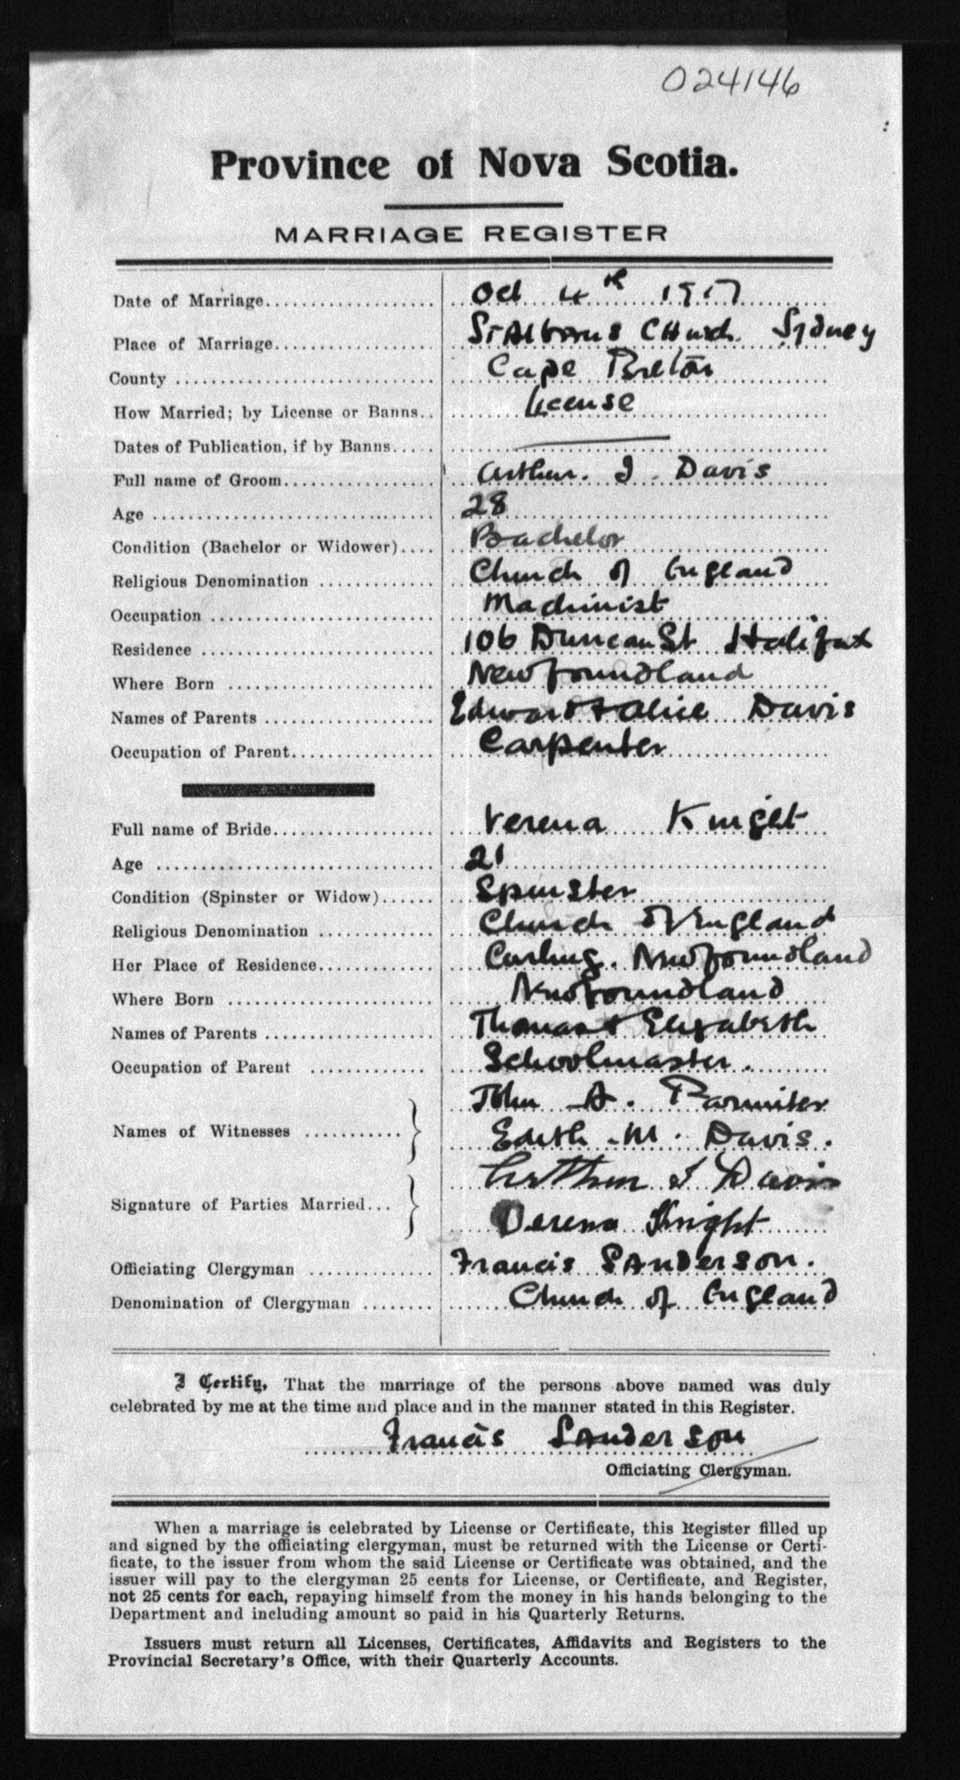 024146
Province of Nova Scotia.
MARRIAGE REGISTER
Date of Marriage Oct 4th 1917
Place of Marriage St Albans Church. Sydney
County Cape Breton
How Married; by License or Banns License
Dates of Publication, if by Banns
Full name of Groom Arthur. J. Davis
Age 28
Condition (Bachelor or Widower) Bachelor
Religious Denomination Church of England
Occupation Machinist
Residence 106 Duncan St Halifax
Where Born Newfoundland
Names of Parents Edward & Alice Davis
Occupation of Parent Carpenter
Full name of Bride Verena Knight
Age 21
Condition (Spinster or Widow) Spinster
Religious Denomination Church of England
Her Place of Residence Curling. Newfoundland
Where Born Newfoundland
Names of Parents Thomas & Elizabeth
Occupation of Parent Schoolmaster.
John A. Parmiter
Names of Witnesses
Edith M. Davis.
Arthur J Davis
Signature of Parties Married
Verena Knight
Officiating Clergyman Francis Sanderson.
Denomination of Clergyman Church of England
I Certify, That the marriage of the persons above named was duly
celebrated by me at the time and place and in the manner stated in this Register.
Francis Sanderson
Officiating Clergyman.
When a marriage is celebrated by License or Certificate, this Register filled up
and signed by the officiating clergyman, must be returned with the License or Certi-
ficate, to the issuer from whom the said License or Certificate was obtained, and the
issuer will pay to the clergyman 25 cents for License, or Certificate, and Register,
not 25 cents for each, repaying himself from the money in his hands belonging to the
Department and including amount so paid in his Quarterly Returns.
Issuers must return all Licenses, Certificates, Affidavits and Registers to the
Provincial Secretary's Office, with their Quarterly Accounts.